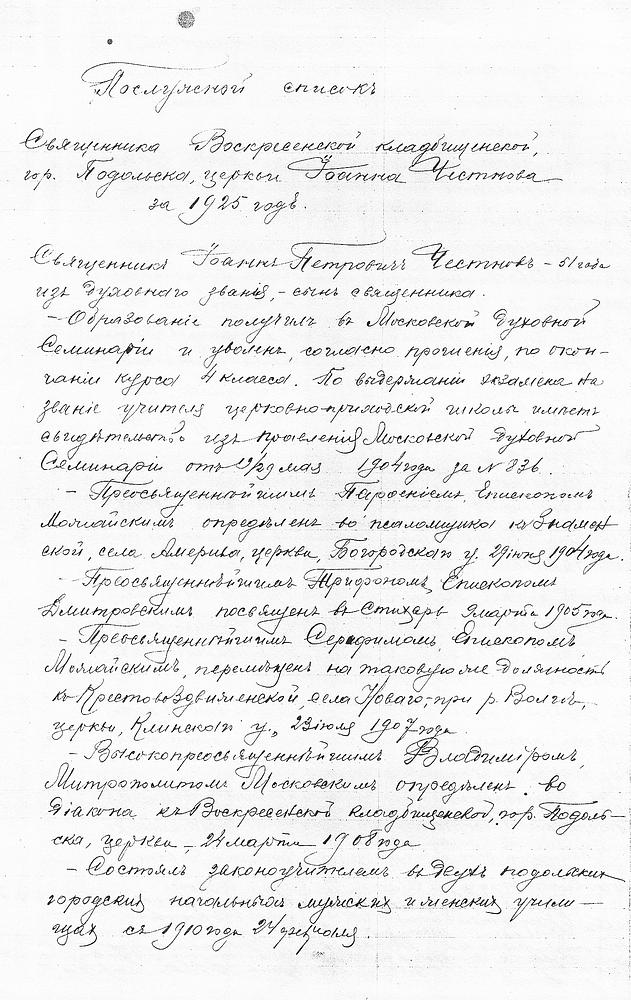 Послужной списокъ
Священника Воскресенской кладбищенской,
гор. Подольска, церкви Іоанна Честнова
за 1925 годъ.
Священникъ Іоаннъ Петровичъ Честновъ – 51 года
изъ духовнаго званія, – сынъ священника.
– Образованіе получилъ въ Московской Духовной
Семинаріи и уволенъ, согласно прошенія, по окон-
чаніи курса 4 класса. По выдержаніи экзамена на
званіе учителя церковно-приходской школы имѣетъ
свидѣтельство изъ правленія Московской Духовной
Семинаріи отъ 19/29 мая 1904 года за № 836.
– Преосвященнѣйшимъ Парѳеніемъ, Епископомъ
Можайскимъ опредѣленъ во псаломщика къ Знамен
ской, села Америва, церкви, Богородскаго у. 29 іюня 1904 года.
– Преосвященнѣйшимъ Трифономъ, Епископомъ
Дмитровскимъ посвященъ въ Стихарь 9 марта 1905 года.
– Преосвященнѣйшимъ Серафимомъ, Епископомъ
Можайскимъ, перемѣщенъ на таковую же должность
къ Крестовоздвиженской, села Новаго, при р. Волгѣ,
церкви, Клинскаго у., 23 іюля 1907 года.
– Высокопреосвященнѣйшимъ Владиміромъ,
Митрополитомъ Московскимъ опредѣленъ во
діакона къ Воскресенской кладбищенской, гор. Подоль-
ска, церкви – 24 марта 1908 года
– Состоялъ законоучителемъ въ двухъ подольских
городских начальных мужских и женских учили-
щах съ 1910 года 24 февраля.